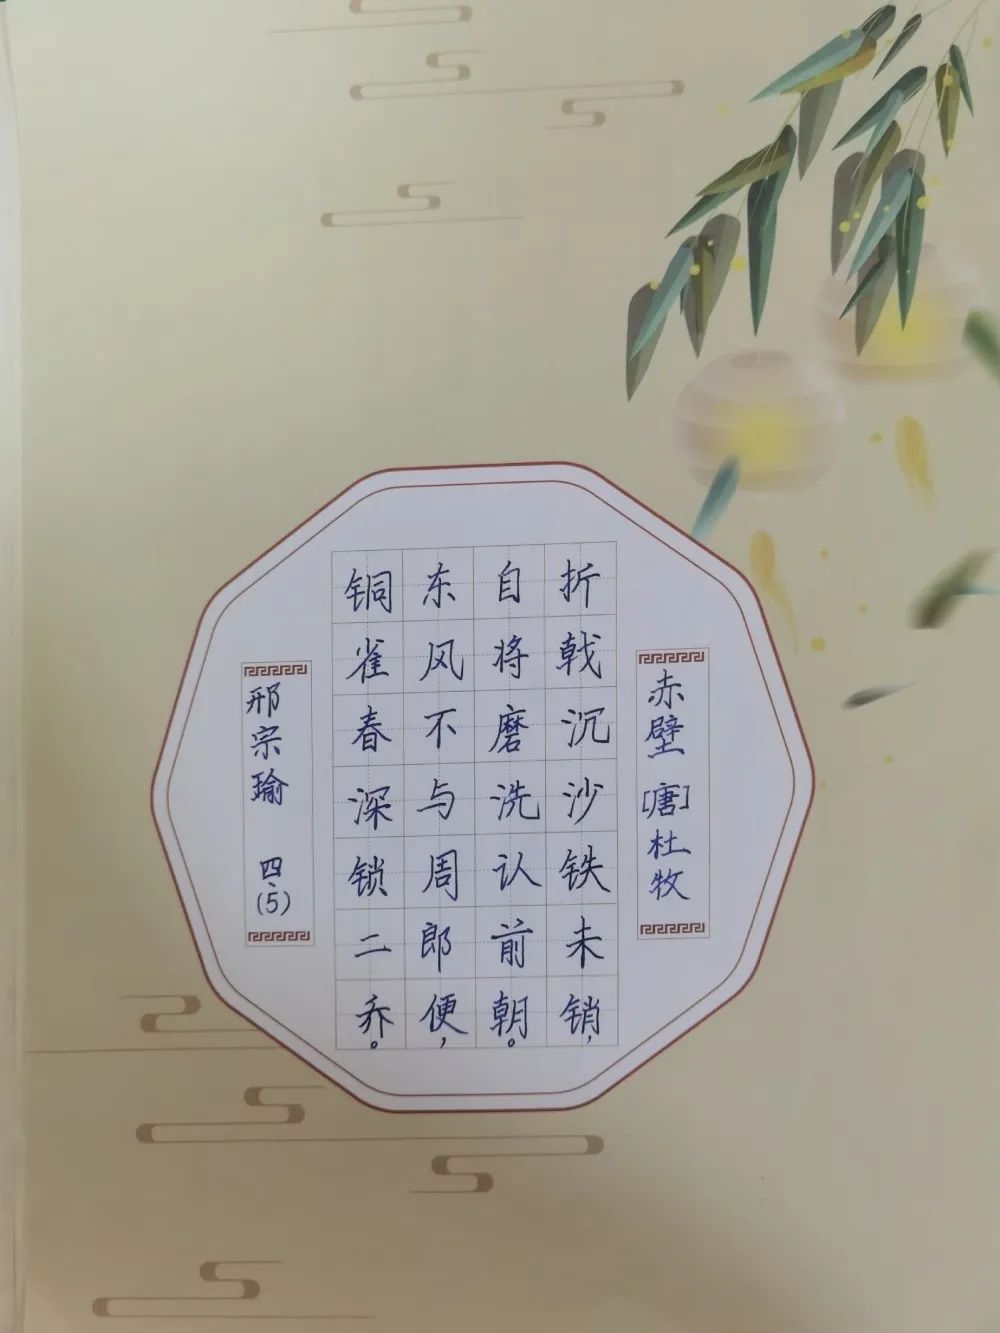 赤壁 [唐]杜牧
折戟沉沙铁未销，
自将磨洗认前朝。
东风不与周郎便，
铜雀春深锁二乔。
邢宗瑜 四、(5)